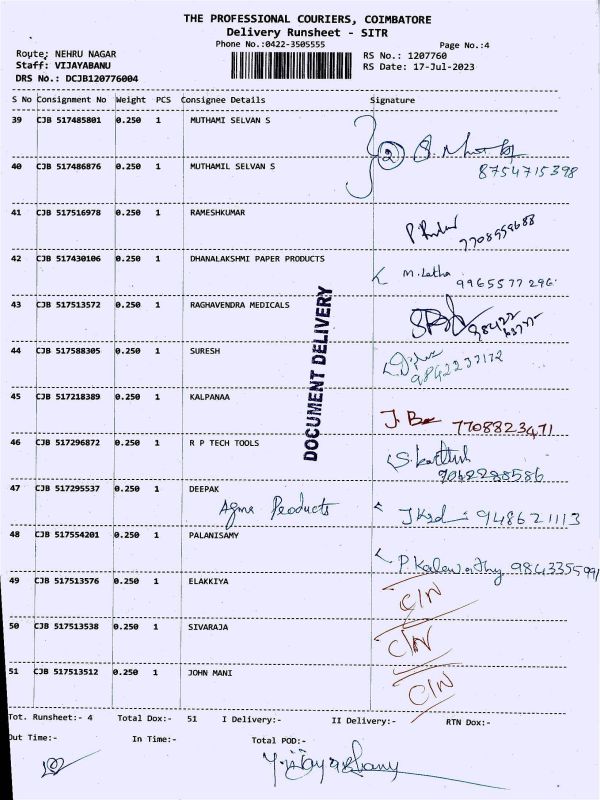 THE PROFESSIONAL COURIERS, COIMBATORE
Delivery Runsheet - SITR
Phone No.:0422-3505555 Page No.:4
Route: NEHRU NAGAR RS No.: 1207760
Staff: VIJAYABANU RS Date: 17-Jul-2023
DRS No.: DCJB120776004
S No Consignment No Weight PCS Consignee Details Signature
39 CJB 517485801 0.250 1 MUTHAMI SELVAN S
2
40 CJB 517486876 0.250 1 MUTHAMIL SELVAN S
8754715398
41 CJB 517516978 0.250 1 RAMESHKUMAR
7708959688
42 CJB 517430106 0.250 1 DHANALAKSHMI PAPER PRODUCTS
M. Latha 9965577296
43 CJB 517513572 0.250 1 RAGHAVENDRA MEDICALS
DOCUMENT DELIVERY
44 CJB 517588305 0.250 1 SURESH
9842237172
45 CJB 517218389 0.250 1 KALPANAA
7708823471
46 CJB 517296872 0.250 1 R P TECH TOOLS
S. Karthik
9042288586
47 CJB 517295537 0.250 1 DEEPAK
Products 9486721113
48 CJB 517554201 0.250 1 PALANISAMY
P. Kalawathy
49 CJB 517513576 0.250 1 ELAKKIYA
C/N
50 CJB 517513538 0.250 1 SIVARAJA
C/N
51 CJB 517513512 0.250 1 JOHN MANI
C/N
Tot. Runsheet:- 4 Total Dox:- 51 I Delivery:- II Delivery:- RTN Dox:-
Out Time:- In Time:- Total POD:-